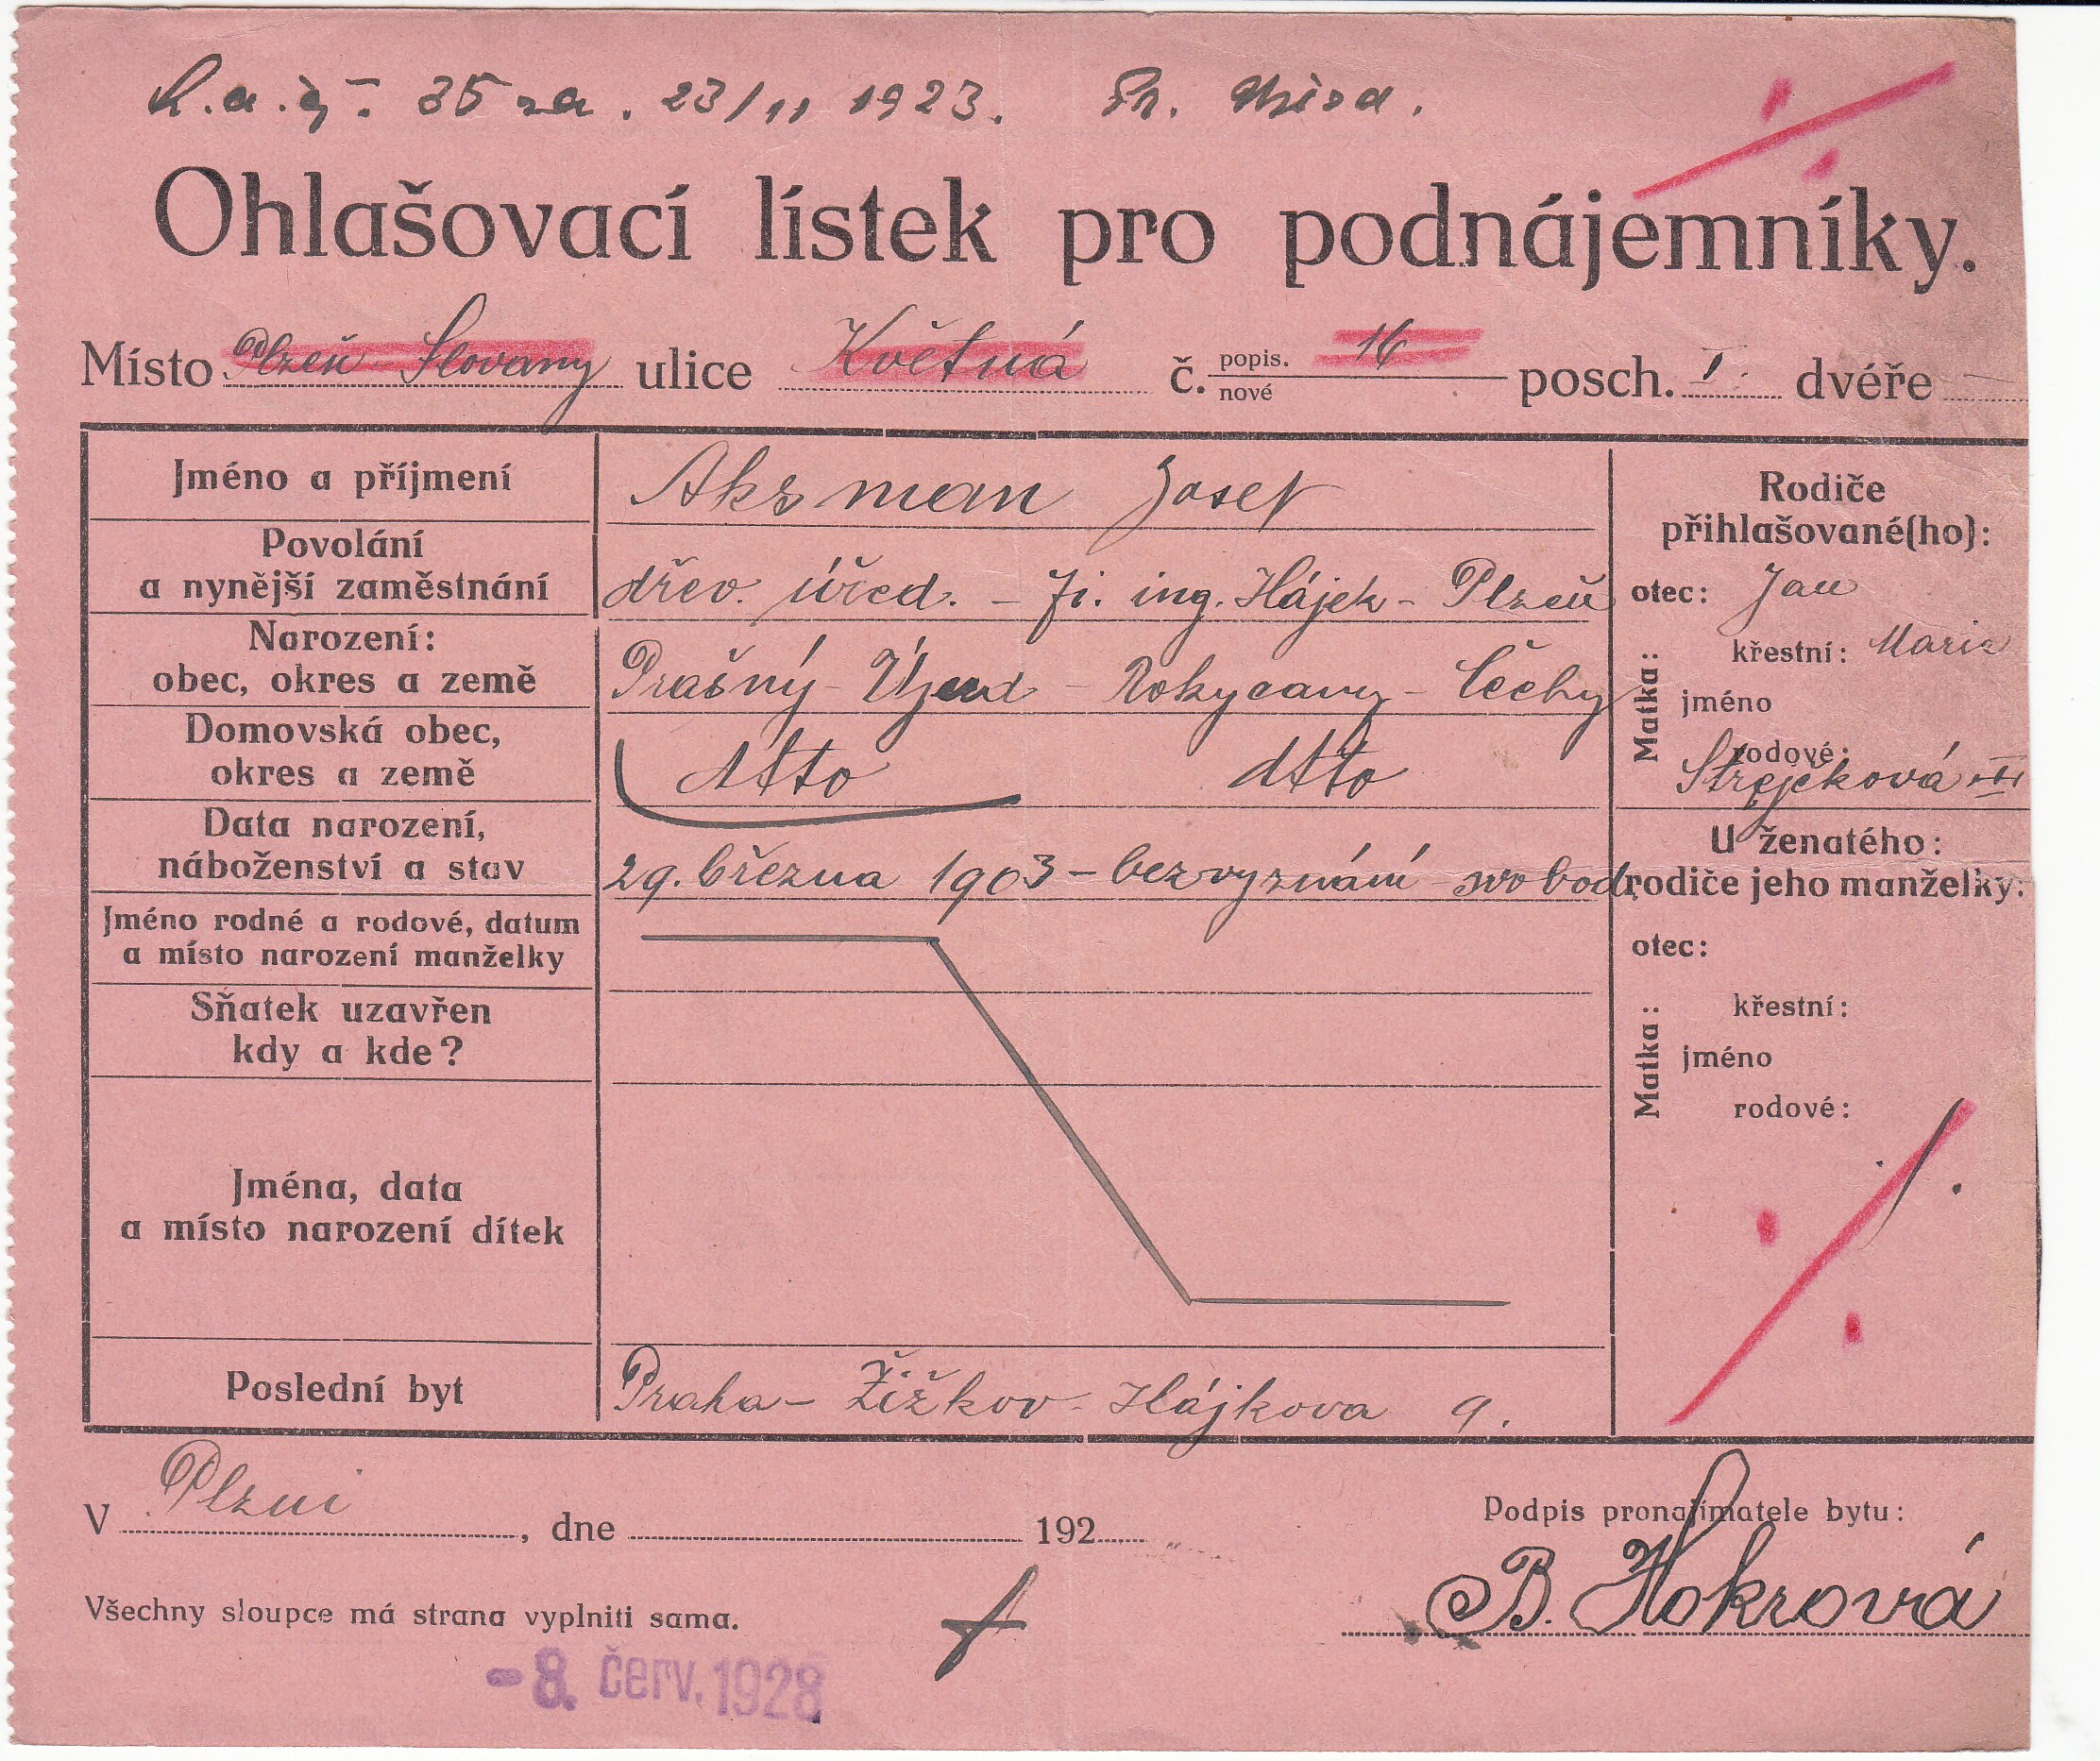 35 23/11 1923.
Ohlašovací lístek pro podnájemníky.
Místo Plzeň Slovany ulice Květná č. popis. nové 16 posch. I. dvéře
Jméno a příjmení Aksman Josef
Povolání
a nynější zaměstnání dřev. úřed. – fi. ing. Hájek – Plzeň
Narození:
obec, okres a země Prašný – Újezd – Rokycany – Čechy
Domovská obec,
okres a země dtto dtto
Data narození,
náboženství a stav 29. března 1903 – bez vyznání – svobod.
Jméno rodné a rodové, datum
a místo narození manželky
Sňatek uzavřen
kdy a kde?
Jména, data
a místo narození dítek
Poslední byt Praha – Žižkov – Hájkova 9.
Rodiče
přihlašované(ho):
otec: Jan
Matka:
křestní: Marie
jméno
rodové:
Strejčková
U ženatého:
rodiče jeho manželky:
otec:
Matka:
křestní:
jméno
rodové:
V Plzni, dne 192
Podpis pronajímatele bytu:
B. Hokrová
Všechny sloupce má strana vyplniti sama.
-8. červ. 1928